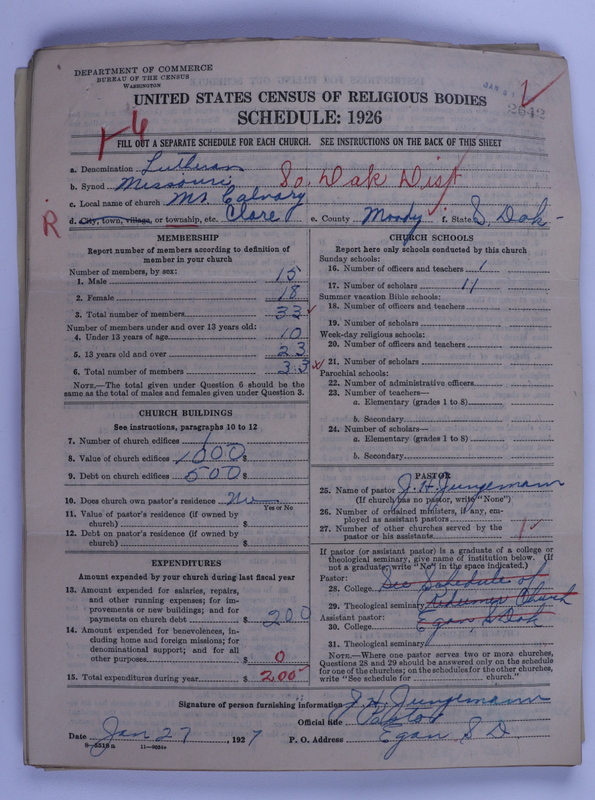 DEPARTMENT OF COMMERCE
BUREAU OF THE CENSUS
WASHINGTON
2642
UNITED STATES CENSUS OF RELIGIOUS BODIES
SCHEDULE: 1926
FILL OUT A SEPARATE SCHEDULE FOR EACH CHURCH. SEE INSTRUCTIONS ON THE BACK OF THIS SHEET
a. Denomination Lutheran
b. Synod Missouri So. Dak Dist
c. Local name of church Mt. Calvary
R
d. City, town, village, or township, etc. Clare e. County Moody f. State S. Dak-
MEMBERSHIP
Report number of members according to definition of member in your church
Number of members, by sex:
1. Male 15
2. Female 18
3. Total number of members 33
Number of members under and over 13 years old:
4. Under 13 years of age 10
5. 13 years old and over 23
6. Total number of members 33
NOTE.—The total given under Question 6 should be the same as the total of males and females given under Question 3.
CHURCH BUILDINGS
See instructions, paragraphs 10 to 12
7. Number of church edifices 1
8. Value of church edifices $ 1000
9. Debt on church edifices $ 500
10. Does church own pastor's residence No
Yes or No
11. Value of pastor's residence (if owned by church) $
12. Debt on pastor's residence (if owned by church) $
EXPENDITURES
Amount expended by your church during last fiscal year
13. Amount expended for salaries, repairs, and other running expenses; for improvements or new buildings; and for payments on church debt $ 200
14. Amount expended for benevolences, including home and foreign missions; for denominational support; and for all other purposes $ 0
15. Total expenditures during year $ 200
CHURCH SCHOOLS
Report here only schools conducted by this church
Sunday schools:
16. Number of officers and teachers 1
17. Number of scholars 11
Summer vacation Bible schools:
18. Number of officers and teachers
19. Number of scholars
Week-day religious schools:
20. Number of officers and teachers
21. Number of scholars
Parochial schools:
22. Number of administrative officers
23. Number of teachers—
a. Elementary (grades 1 to 8)
b. Secondary
24. Number of scholars—
a. Elementary (grades 1 to 8)
b. Secondary
PASTOR
25. Name of pastor J. H. Jungemann
(If church has no pastor, write "None")
26. Number of ordained ministers, if any, employed as assistant pastors
27. Number of other churches served by the pastor or his assistants 1
If pastor (or assistant pastor) is a graduate of a college or theological seminary, give name of institution below. (If not a graduate, write "No" in the space indicated.)
Pastor:
28. College See Schedule of
29. Theological seminary Redeemer Church
Assistant pastor:
30. College Egan, S. Dak
31. Theological seminary
NOTE.—Where one pastor serves two or more churches, Questions 28 and 29 should be answered only on the schedule for one of the churches; on the schedules for the other churches, write "See schedule for church."
Signature of person furnishing information J. H. Jungemann
Official title Pastor
Date Jan 27, 1927 P. O. Address Egan S D